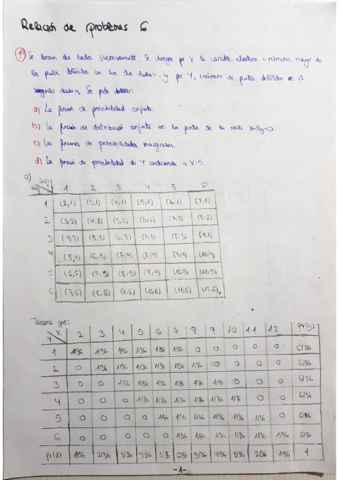 Relación de problemas 6
1) Se lanzan dos dados sucesivamente. Se designa por X la variable aleatoria
los puntos obtenidos en los dos dados, y por Y, número de puntos obtenidos en el
segundo dado. Se pide obtener:
a) La función de probabilidad conjunta.
b) La función de distribución conjunta en los puntos de la recta x-2y=0
c) Las funciones de probabilidades marginales.
d) La función de probabilidad de Y condicionada a X=5
a)
1 2 3 4 5 6
1 (2,1) (3,1) (4,1) (5,1) (6,1) (7,1)
2 (3,2) (4,2) (5,2) (6,2) (7,2) (8,2)
3 (4,3) (5,3) (6,3) (7,3) (8,3) (9,3)
4 (5,4) (6,4) (7,4) (8,4) (9,4) (10,4)
5 (6,5) (7,5) (8,5) (9,5) (10,5) (11,5)
6 (7,6) (8,6) (9,6) (10,6) (11,6) (12,6)
Tenemos que:
Y X 2 3 4 5 6 7 8 9 10 11 12
1 1/36 1/36 1/36 1/36 1/36 1/36 0 0 0 0 0 6/36
2 0 1/36 1/36 1/36 1/36 1/36 1/36 0 0 0 0 6/36
3 0 0 1/36 1/36 1/36 1/36 1/36 1/36 0 0 0 6/36
4 0 0 0 1/36 1/36 1/36 1/36 1/36 1/36 0 0 6/36
5 0 0 0 0 1/36 1/36 1/36 1/36 1/36 1/36 0 6/36
6 0 0 0 0 0 1/36 1/36 1/36 1/36 1/36 1/36 6/36
1/36 2/36 3/36 4/36 5/36 6/36 5/36 4/36 3/36 2/36 1/36 1
-1-